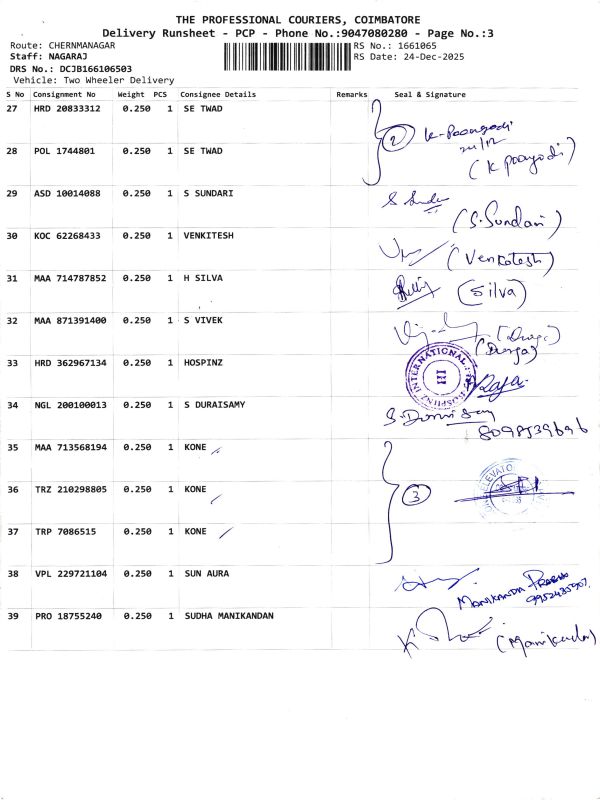 THE PROFESSIONAL COURIERS, COIMBATORE
Delivery Runsheet - PCP - Phone No.:9047080280 - Page No.:3
Route: CHERNMANAGAR RS No.: 1661065
Staff: NAGARAJ RS Date: 24-Dec-2025
DRS No.: DCJB166106503
Vehicle: Two Wheeler Delivery
S No Consignment No Weight PCS Consignee Details Remarks Seal & Signature
27 HRD 20833312 0.250 1 SE TWAD
2 K-Poongodi
24/12
28 POL 1744801 0.250 1 SE TWAD (K poongodi)
29 ASD 10014088 0.250 1 S SUNDARI (S.Sundari)
30 KOC 62268433 0.250 1 VENKITESH (Venkatesh)
31 MAA 714787852 0.250 1 H SILVA (Silva)
32 MAA 871391400 0.250 1 S VIVEK (Durga)
33 HRD 362967134 0.250 1 HOSPINZ HOSPINZ INTERNATIONAL Raja
34 NGL 200100013 0.250 1 S DURAISAMY S.Duraisamy
8098539696
35 MAA 713568194 0.250 1 KONE
36 TRZ 210298805 0.250 1 KONE 3
37 TRP 7086515 0.250 1 KONE
38 VPL 229721104 0.250 1 SUN AURA
MANIKANDA PRABHU
39 PRO 18755240 0.250 1 SUDHA MANIKANDAN (Manikandan)